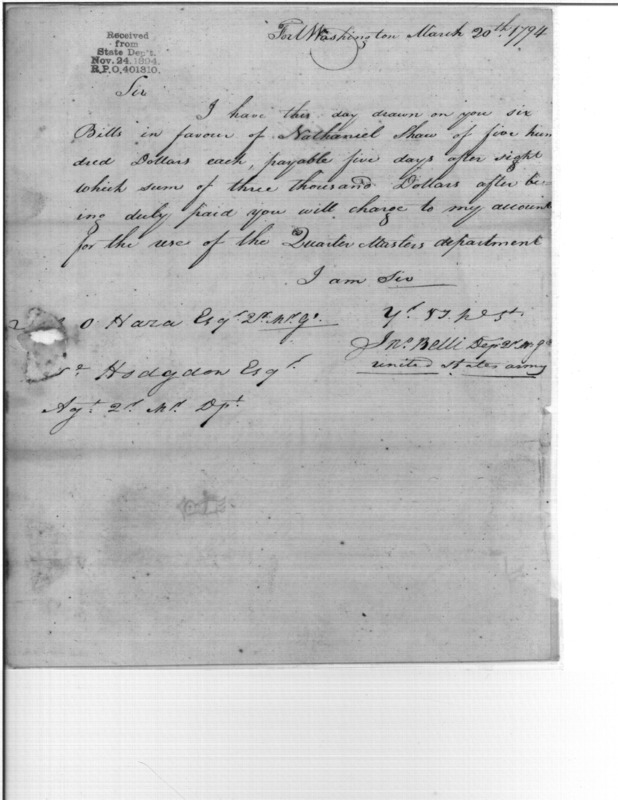 Received
from
State Dep't.
Nov. 24. 1894.
R.P.O. 401810.
Fort Washington March 20th. 1794
Sir
I have this day drawn on you six
Bills in favour of Nathaniel Shaw of five hun
dred Dollars each, payable five days after sight
which sum of three thousand Dollars after be-
ing duly paid you will charge to my account
for the use of the Quarter Masters department
I am Sir
O Hara Esqr. Qr. Mr. Gl.
Jno. Belli Dep Qr. M. Gl.
united States army
Hodgdon Esqr.
Agt. Qr. Mr. Dpt.